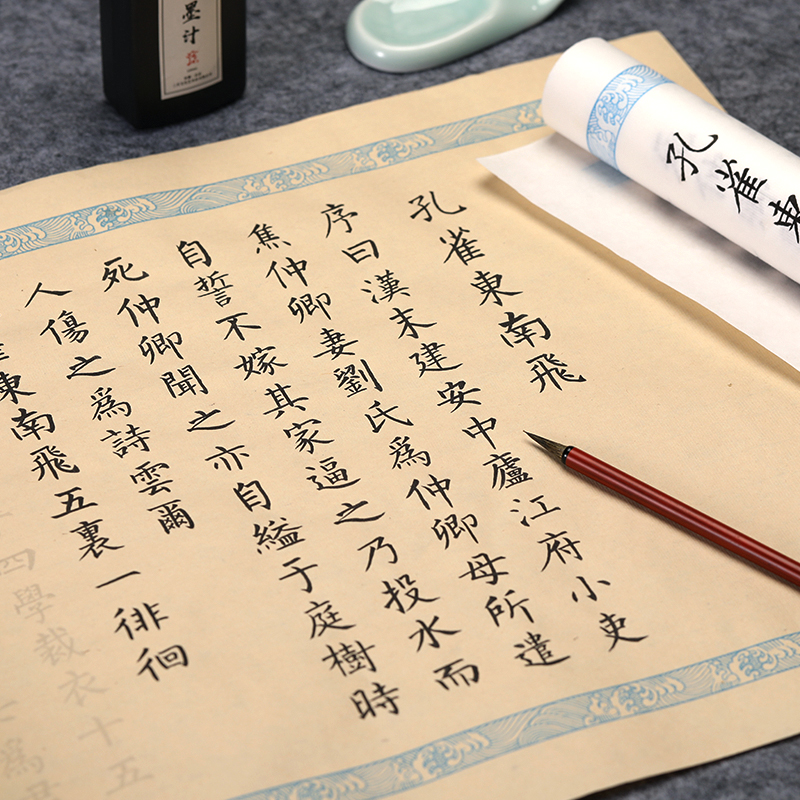 墨汁
孔雀東
孔雀東南飛
序曰漢末建安中廬江府小吏
焦仲卿妻劉氏爲仲卿母所遣
自誓不嫁其家逼之乃投水而
死仲卿聞之亦自縊于庭樹時
人傷之爲詩雲爾
雀東南飛五裏一徘徊
四學裁衣十五
爲